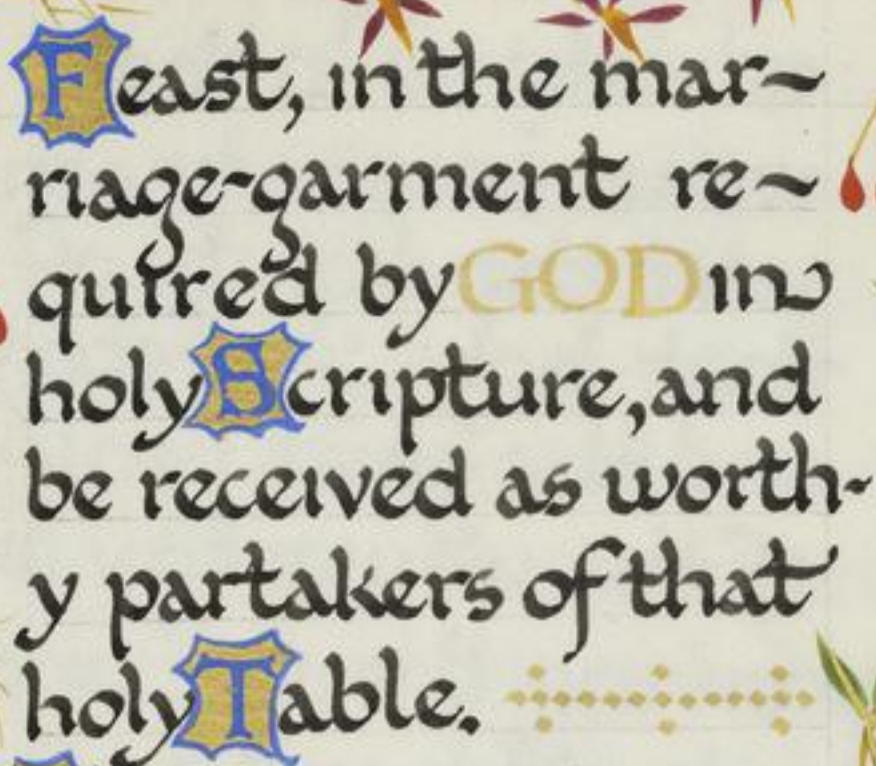 Feast, in the mar~
riage-garment re~
quired by GOD in
holy Scripture, and
be received as worth-
y partakers of that
holy Table.